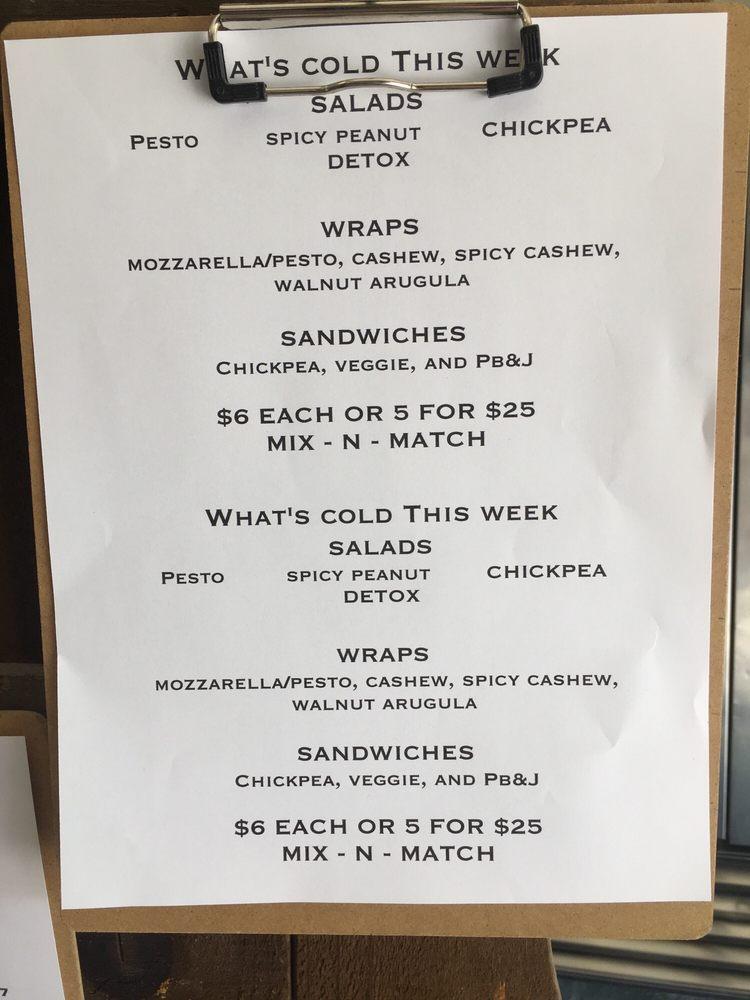 WHAT'S COLD THIS WEEK
SALADS
PESTO SPICY PEANUT CHICKPEA
DETOX
WRAPS
MOZZARELLA/PESTO, CASHEW, SPICY CASHEW,
WALNUT ARUGULA
SANDWICHES
CHICKPEA, VEGGIE, AND PB&J
$6 EACH OR 5 FOR $25
MIX - N - MATCH
WHAT'S COLD THIS WEEK
SALADS
PESTO SPICY PEANUT CHICKPEA
DETOX
WRAPS
MOZZARELLA/PESTO, CASHEW, SPICY CASHEW,
WALNUT ARUGULA
SANDWICHES
CHICKPEA, VEGGIE, AND PB&J
$6 EACH OR 5 FOR $25
MIX - N - MATCH